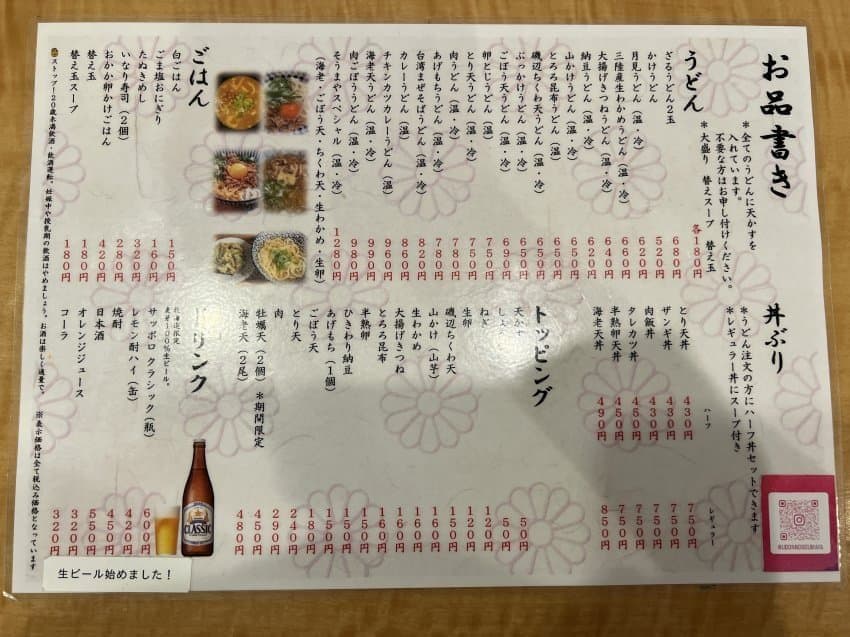 お品書き
*全てのうどんに天かすを
入れています。
不要な方はお申し付けください。
*大盛り 替えスープ 替え玉 各180円
うどん
ざるうどん2玉 680円
かけうどん 520円
月見うどん(温・冷) 620円
三陸産生わかめうどん(温・冷) 660円
大揚げきつねうどん(温・冷) 640円
納豆うどん(温・冷) 620円
山かけうどん(温・冷) 650円
とろろ昆布うどん(温・冷) 650円
磯辺ちくわ天うどん(温・冷) 650円
ぶっかけうどん(温・冷) 690円
ごぼう天うどん(温・冷)
卵とじうどん(温) 650円
とり天うどん(温・冷) 750円
肉うどん(温・冷) 780円
あげもちうどん(温・冷) 780円
台湾まぜそばうどん(温・冷) 820円
カレーうどん(温) 860円
チキンカツカレーうどん(温) 960円
海老天うどん(温・冷) 990円
肉ごぼううどん(温・冷) 980円
そうまやスペシャル(温・冷) 1280円
(海老・ごぼう天・ちくわ天・生わかめ・生卵)
ごはん
白ごはん 150円
ごま塩おにぎり 160円
たぬきめし 320円
いなり寿司(2個) 280円
おかか卵かけごはん 420円
替え玉 180円
替え玉スープ 180円
ストップ!20歳未満飲酒・飲酒運転。妊娠中や授乳期の飲酒はやめましょう。お酒は楽しく適量で。
※表示価格は全て税込み価格となっています
丼ぶり
*うどん注文の方にハーフ丼セットできます
*レギュラー丼にスープ付き
ハーフ レギュラー
とり天丼 430円 750円
ザンギ丼 430円 750円
肉飯丼 430円 750円
タレカツ丼 450円 780円
半熟卵天丼 450円 780円
海老天丼 490円 850円
トッピング
天かす 50円
しょうが 50円
ねぎ 120円
生卵 120円
磯辺ちくわ天 150円
山かけ(山芋) 160円
生わかめ 160円
大揚げきつね 160円
とろろ昆布 160円
半熟卵 150円
ひきわり納豆 150円
あげもち(1個) 150円
ごぼう天 180円
とり天 240円
肉 290円
牡蠣天(2個)*期間限定 450円
海老天(2尾) 480円
ドリンク
北海道限定
麦芽100%生ビール。
サッポロ クラシック(瓶) 600円
レモン酎ハイ(缶) 420円
焼酎 450円
日本酒 550円
オレンジジュース 320円
コーラ 320円
CLASSIC
生ビール始めました!